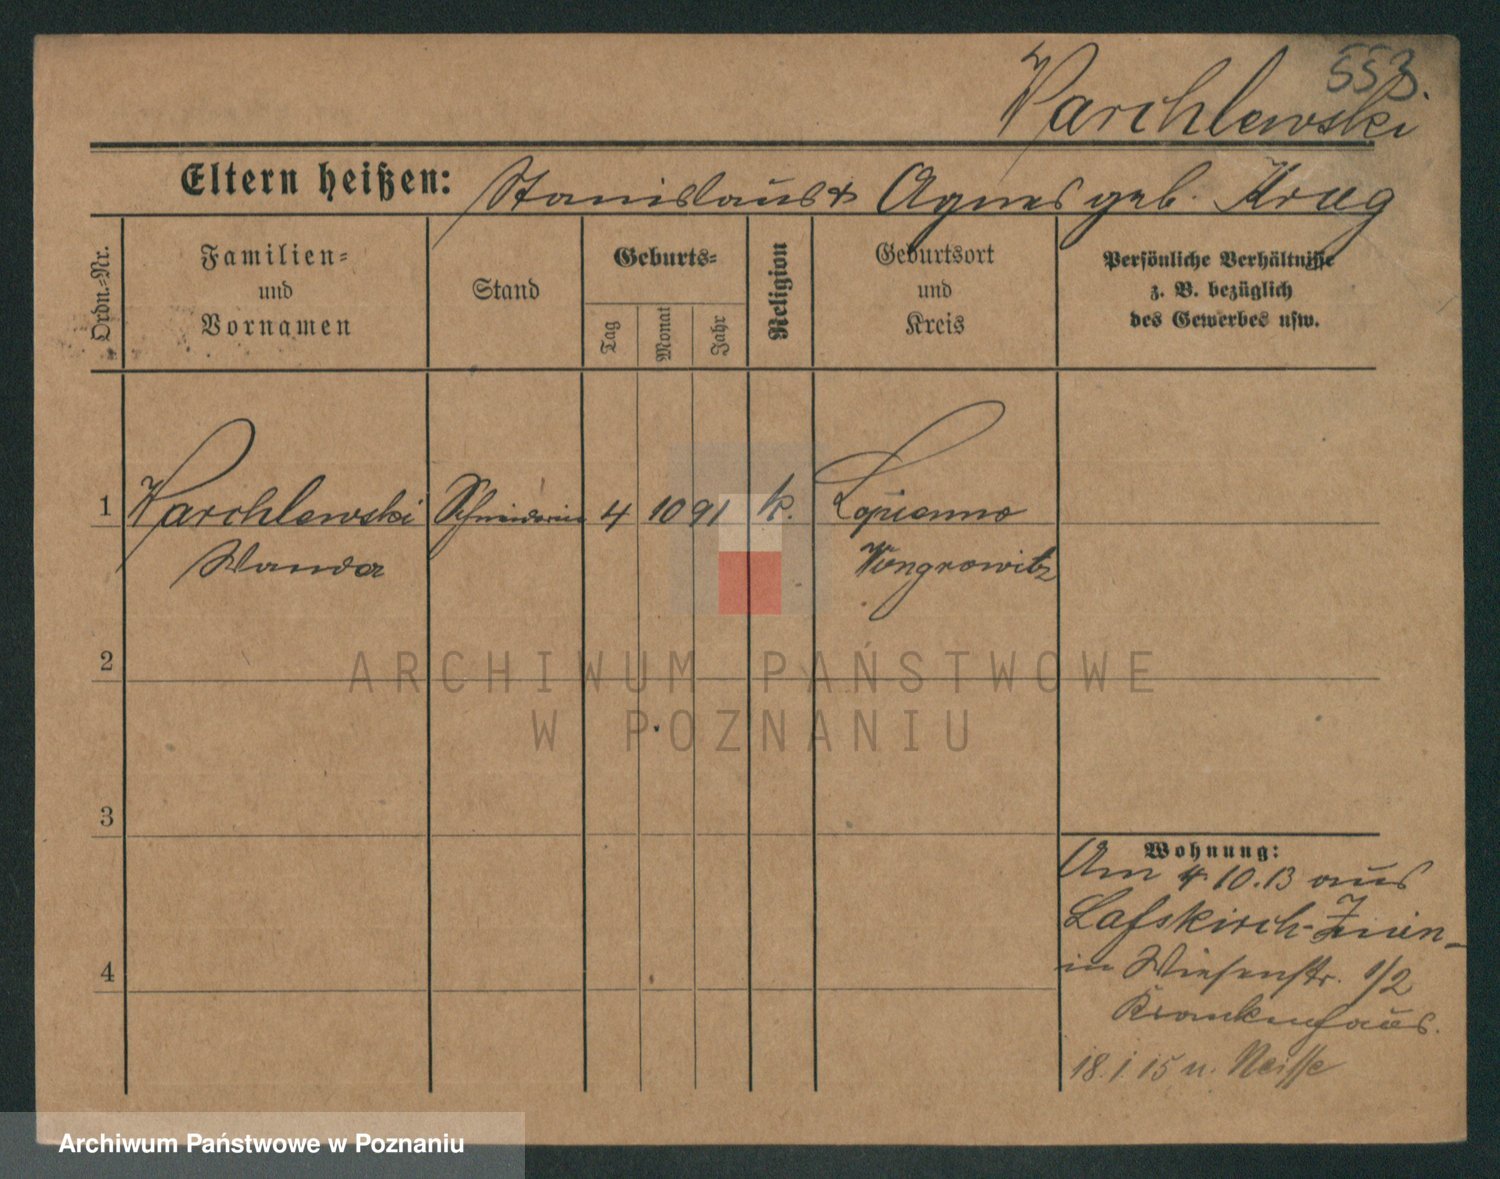 553.
Warchlewski
Eltern heißen: Stanislaus & Agnes geb. Krug
Ordn.-Nr.
Familien-
und
Vornamen
Stand
Geburts-
Tag
Monat
Jahr
Religion
Geburtsort
und
Kreis
Persönliche Verhältnisse
z. B. bezüglich
des Gewerbes usw.
1 Warchlewski Schneiderin 4 10 91 k. Lopienno
Wanda Wongrowitz
2
ARCHIWUM PAŃSTWOWE
W POZNANIU
3
Wohnung:
Am 4.10.13 aus
in Wiesenstr. 1/2
Krankenhaus.
4
18.1.15 n. Neisse
Archiwum Państwowe w Poznaniu